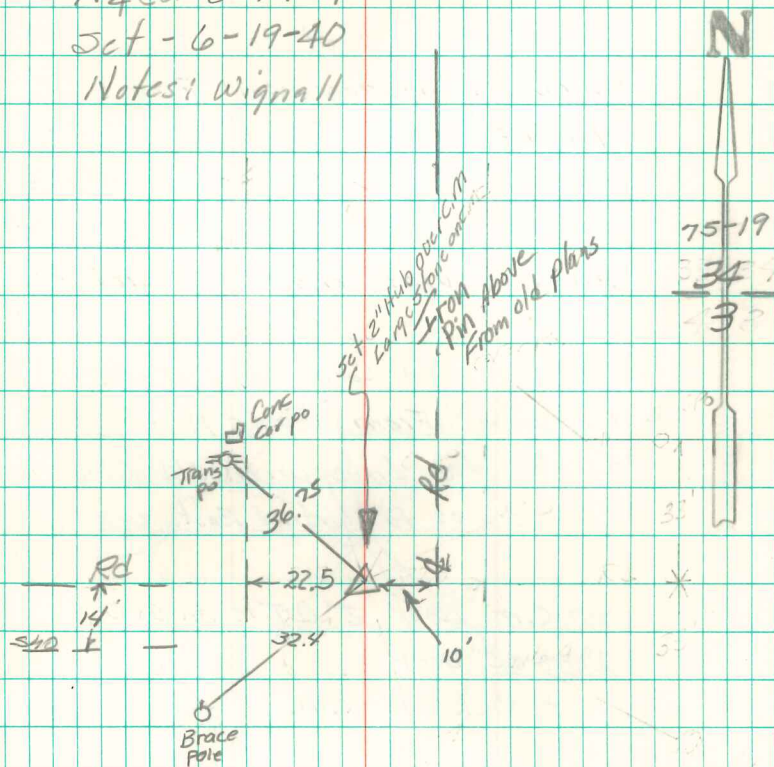 Set - 6-19-40
Notes: Wignall
N
75-19
34
3
Set 2" Hub over cm
Large Stone
Iron
Pin Above
From old plans
Conc
cor po
Trans
po
36.75
Rd
℄
Rd
22.5
14'
32.4
10'
Brace
Pole